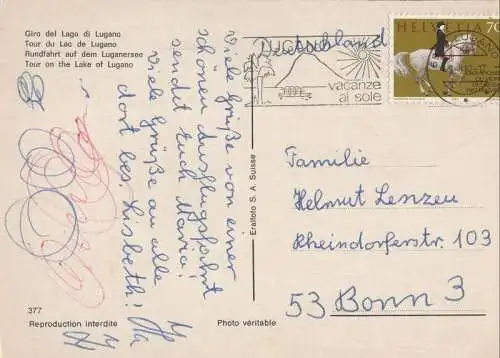 Giro del Lago di Lugano
Tour du Lac de Lugano
Rundfahrt auf dem Luganersee
Tour on the Lake of Lugano
Viele Grüße von einer
schönen Ausflugsfahrt
sendet Euch Maria!
Viele Grüße an alle
dort bes. Lisbeth!
377
Reproduction interdite
Photo véritable
Eralfoto S. A. Suisse
HELVETIA 70
Deutschland
LUGANO
vacanze
al sole
Familie
Helmut Lenzen
Rheindorferstr. 103
53 Bonn 3